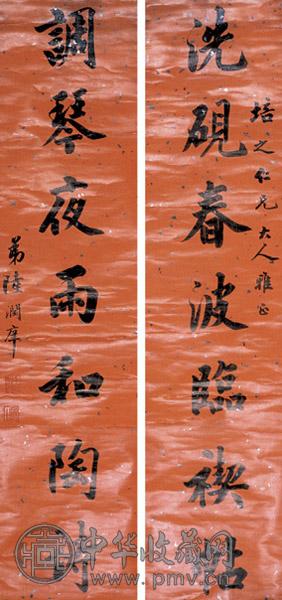 培之仁兄大人雅正
洗硯春波臨禊帖
調琴夜雨和陶詩
弟陸潤庠
中华收藏网
www.pmv.cn